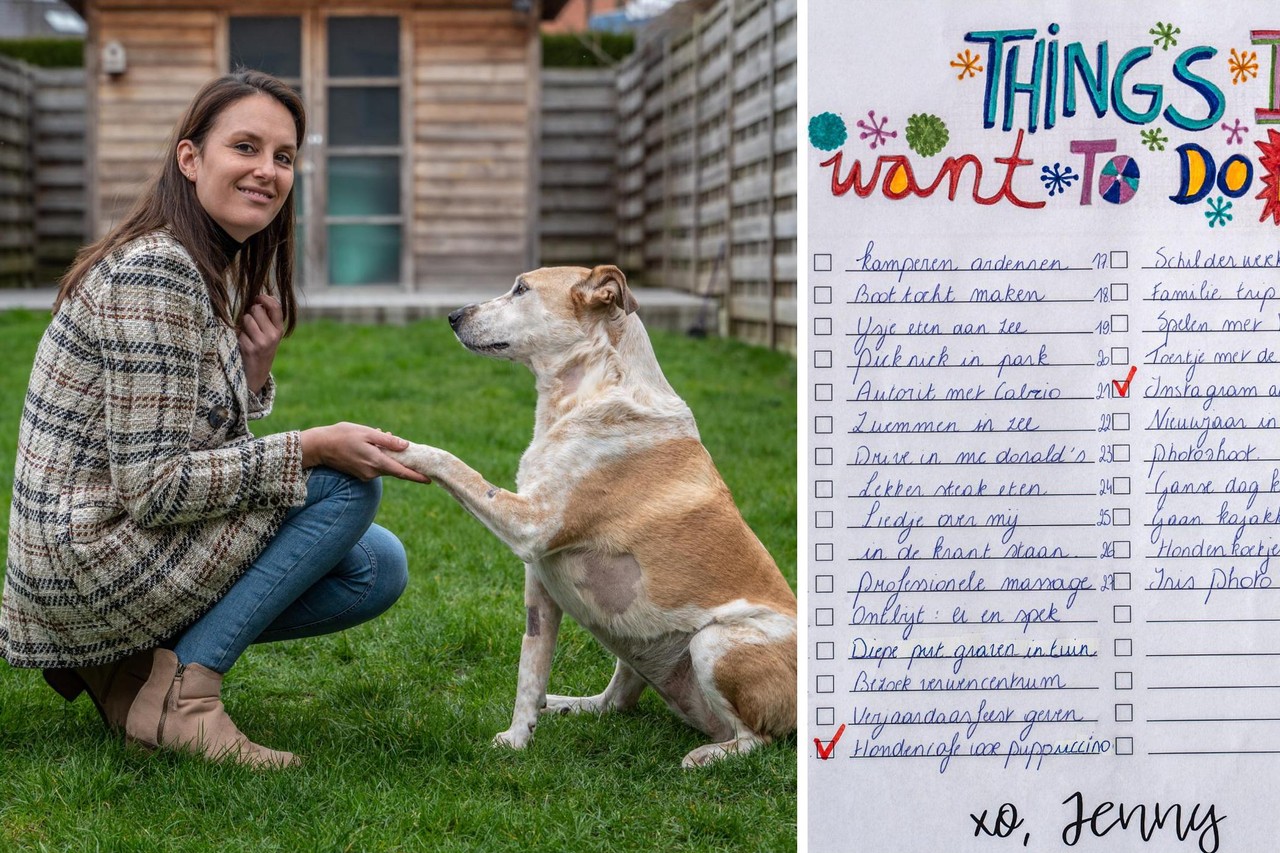 THINGS I
want TO DO
kamperen ardennen
Boottocht maken
Ijsje eten aan zee
Picknick in park
Autorit met Cabrio
Zwemmen in zee
Drive in mc donald's
Lekker steak eten
Liedje over mij
in de krant staan
Professionele massage
Ontbijt: ei en spek
Diepe put graven in tuin
Bezoek verwencentrum
Verjaardagsfeest geven
Hondencafe voor puppuccino
17 Schilderwerk
18 Familie trip
19 Spelen met
20 Toertje met de
21 Instagram a
22 Nieuwjaar in
23 Photoshoot
24 Ganse dag k
25 Gaan kajak
26 Hondenkoekje
27 Iris photo
xo, Jenny